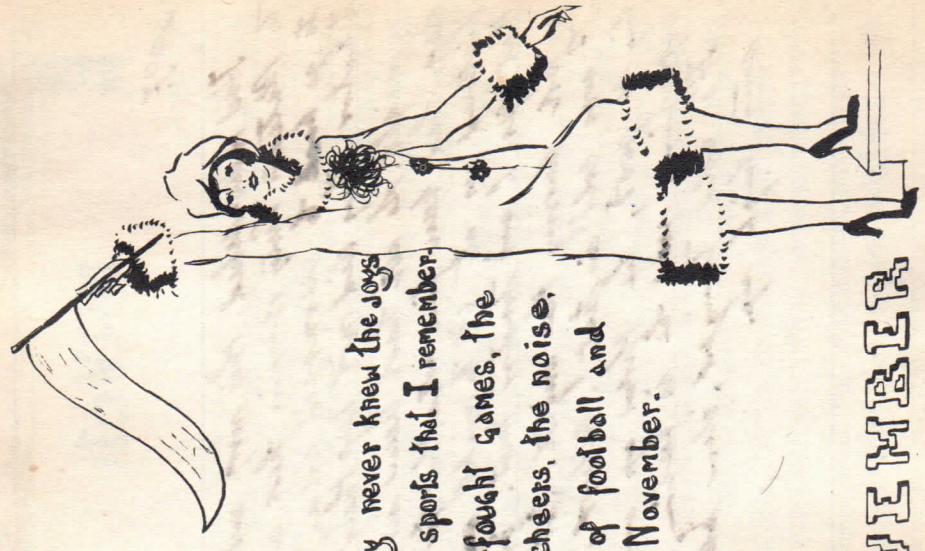 y never knew the joys
sports that I remember.
fought games, the
cheers, the noise,
of football and
November.
VEMBER